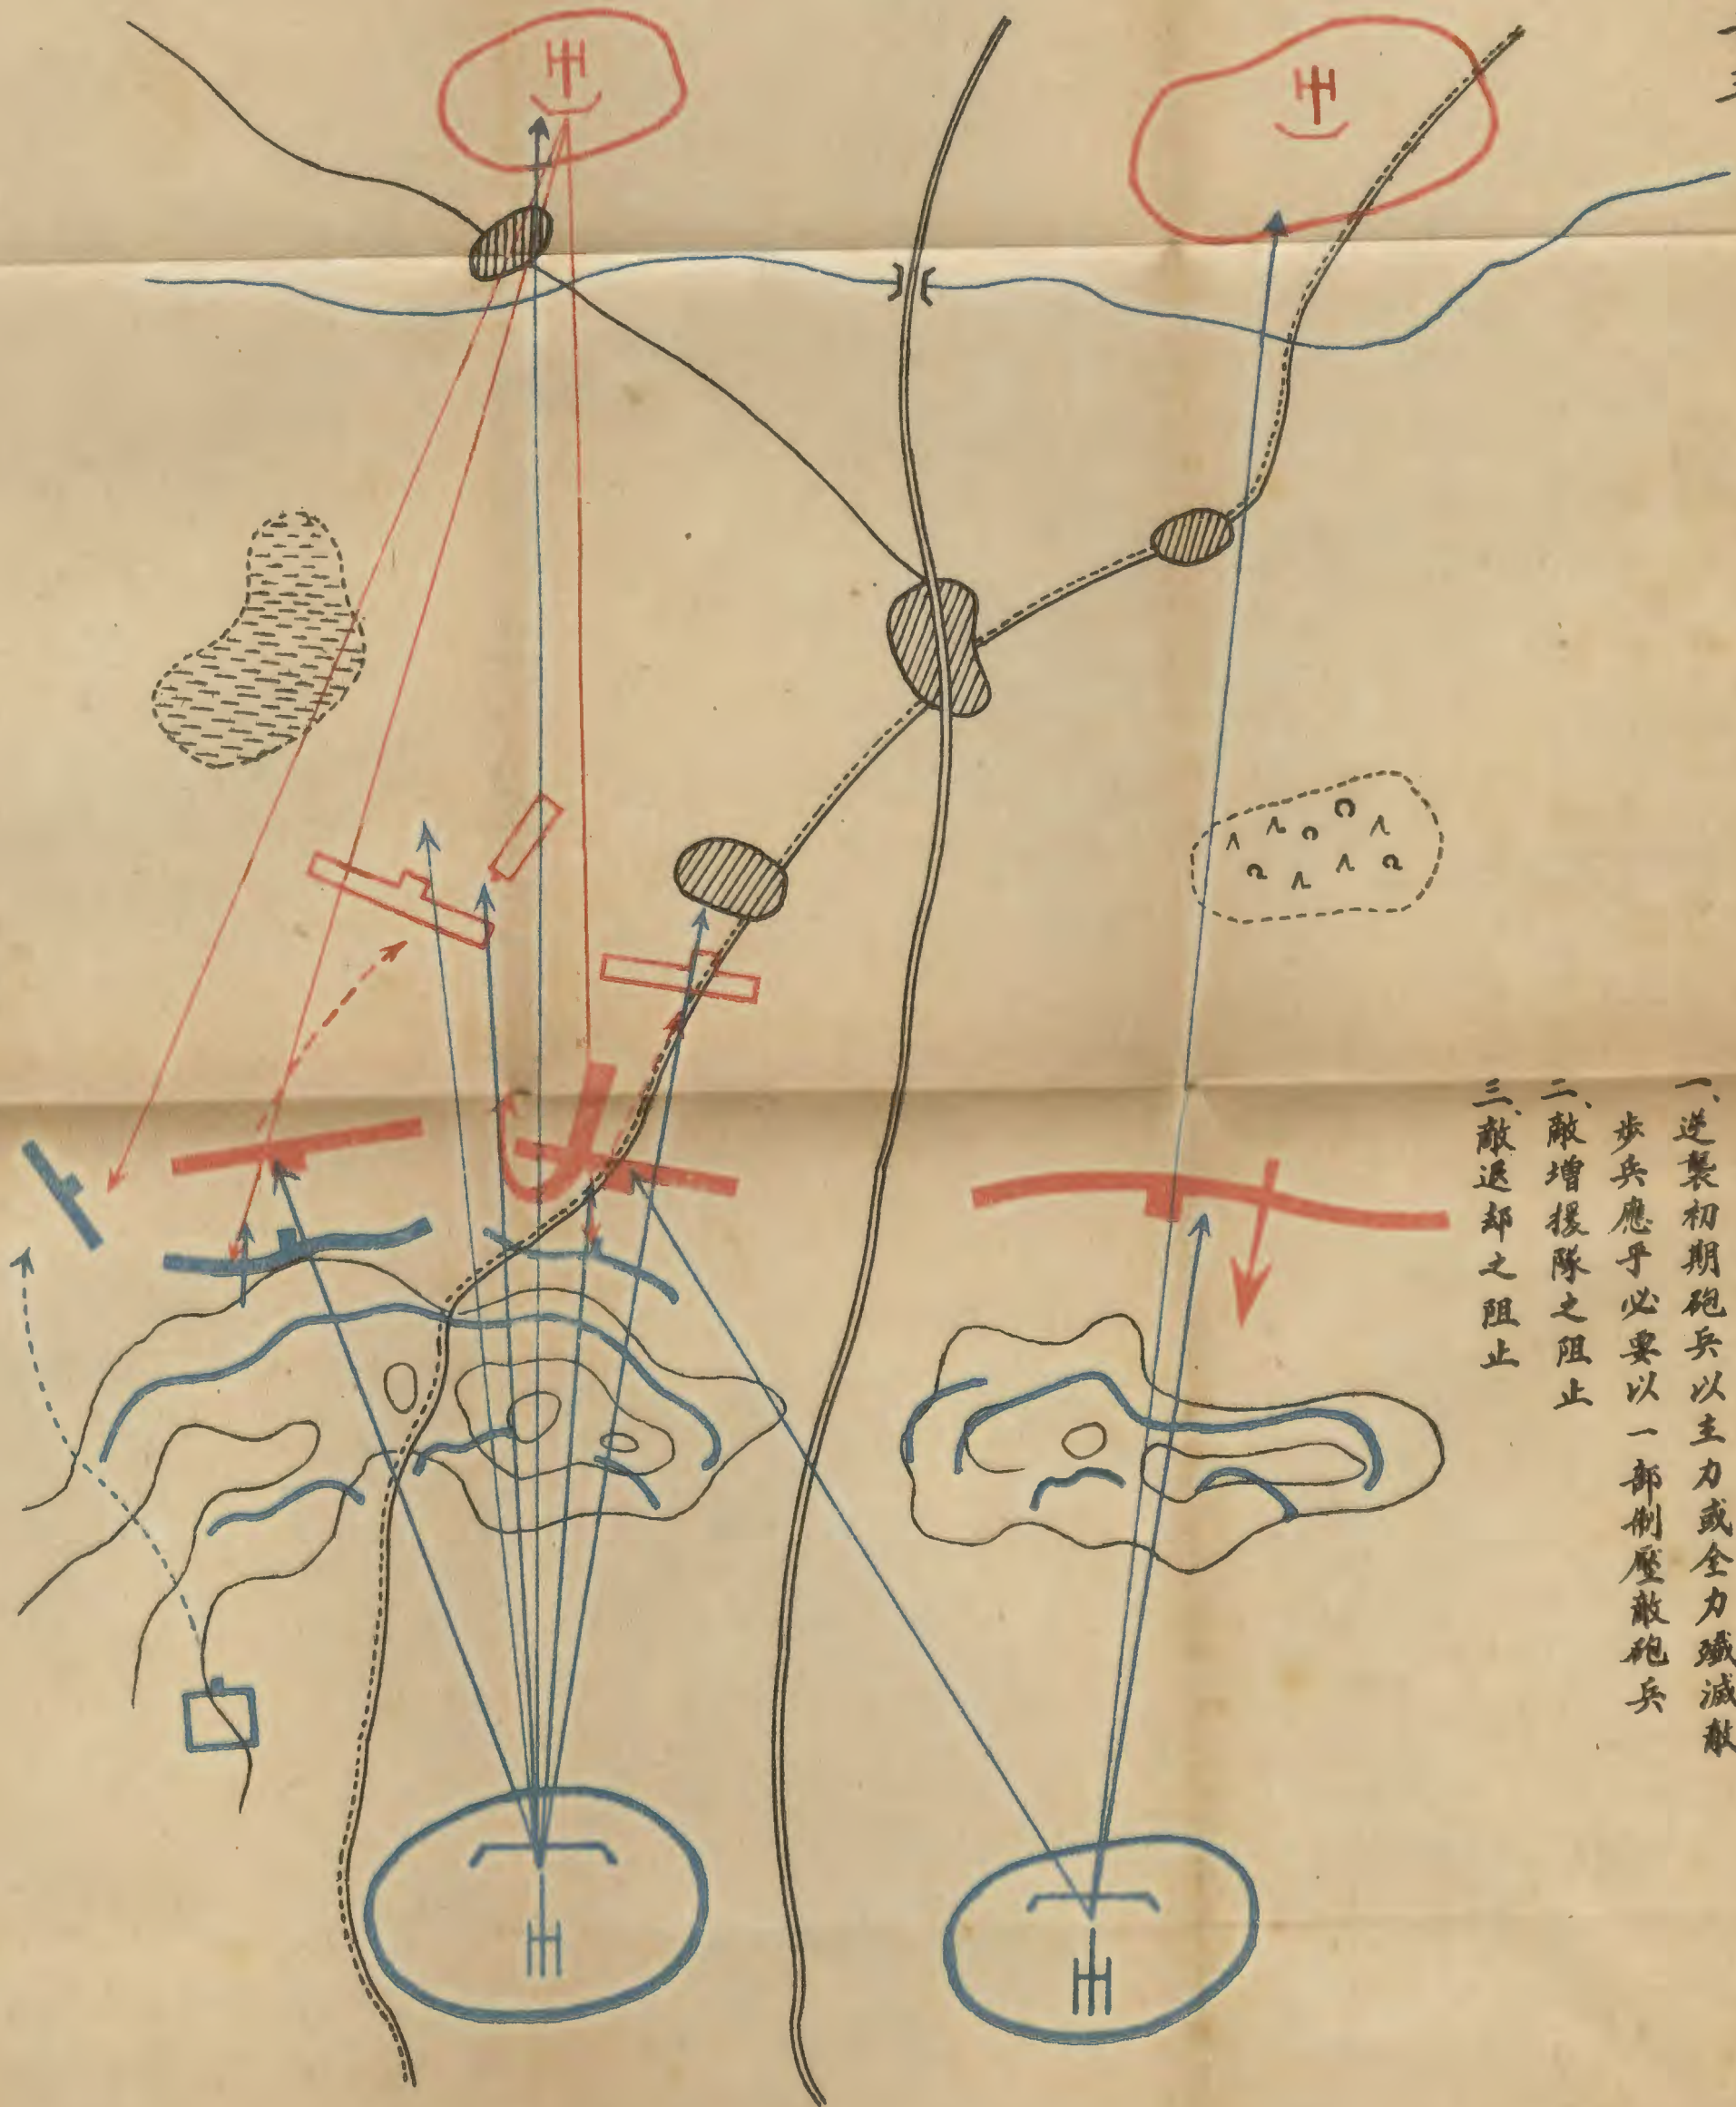 一、逆襲初期砲兵以主力或全力殲滅敵
步兵應乎必要以一部制壓敵砲兵
二、敵增援隊之阻止
三、敵退却之阻止